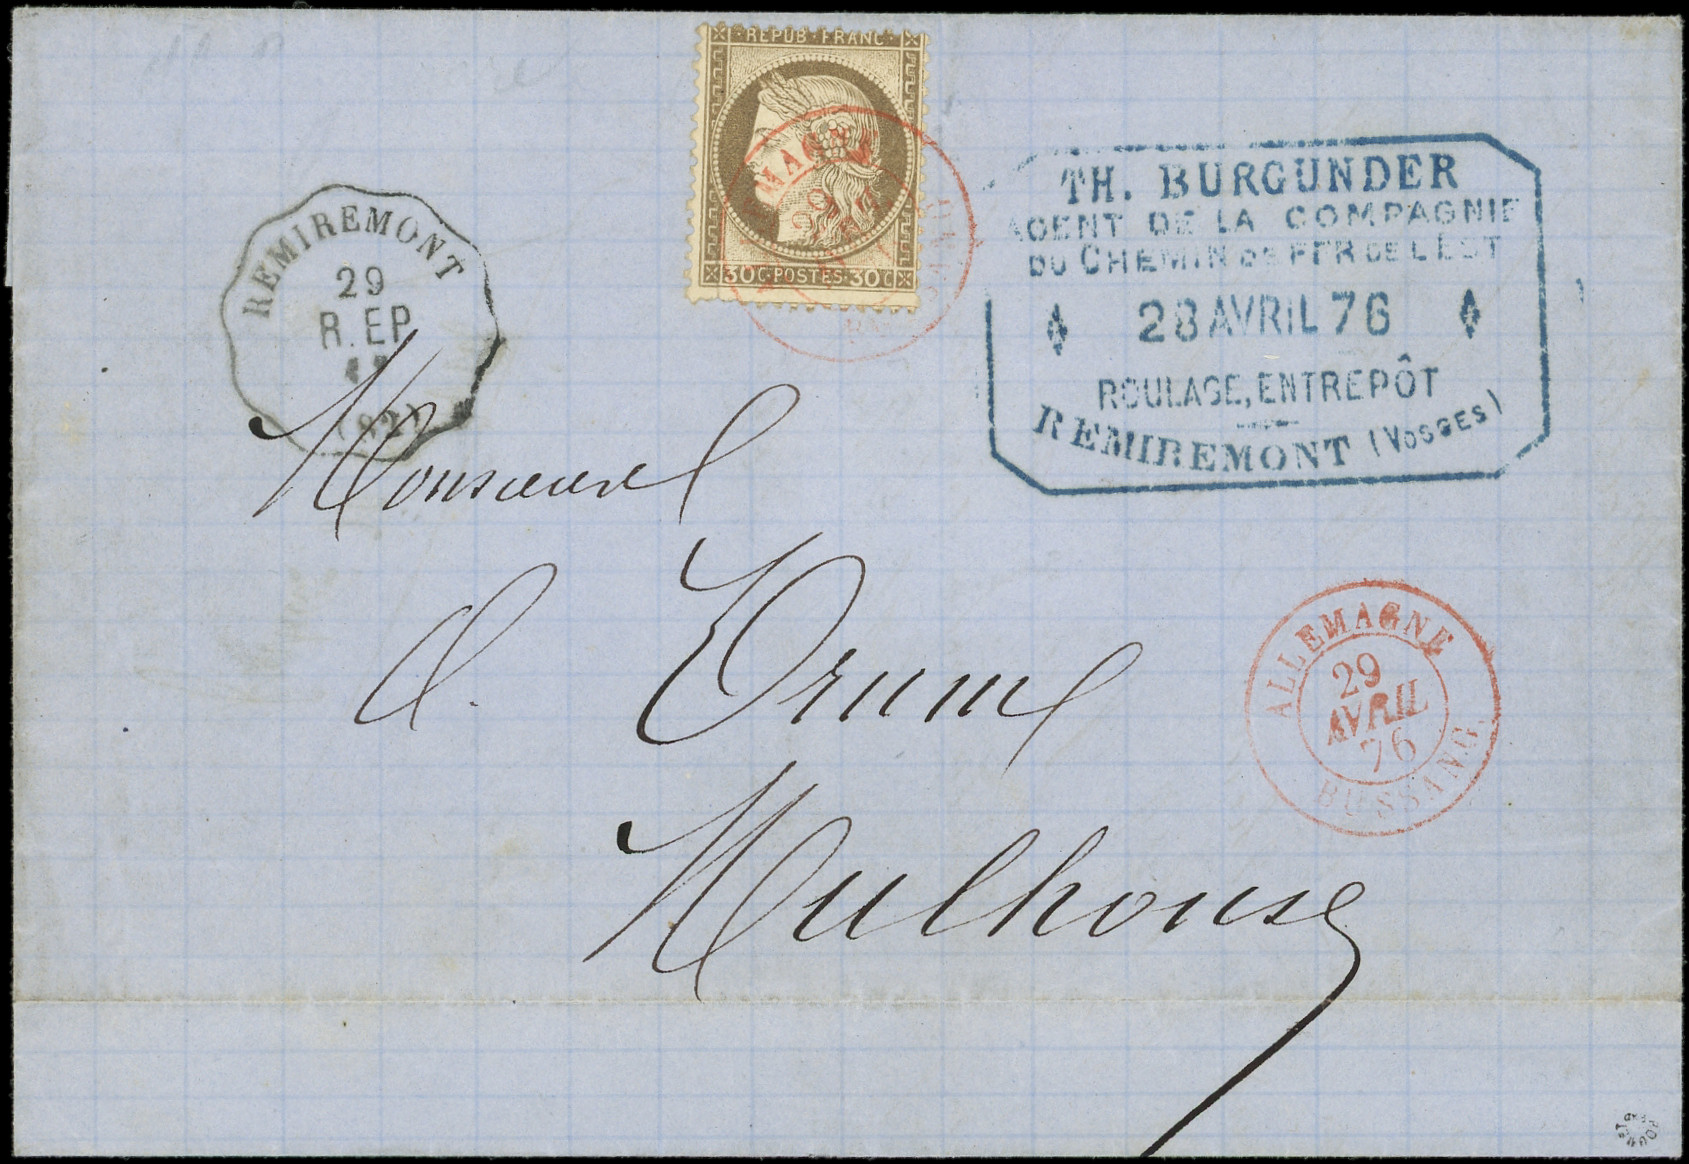 REPUB · FRANC
30 C · POSTES · 30 C
TH. BURGUNDER
AGENT DE LA COMPAGNIE
DU CHEMIN DE FER DE L'EST
28 AVRIL 76
ROULAGE, ENTREPÔT
REMIREMONT (VOSGES)
REMIREMONT
29
R. EP
(82)
Monsieur
Mulhouse
ALLEMAGNE
29
AVRIL
76
BUSSANG.